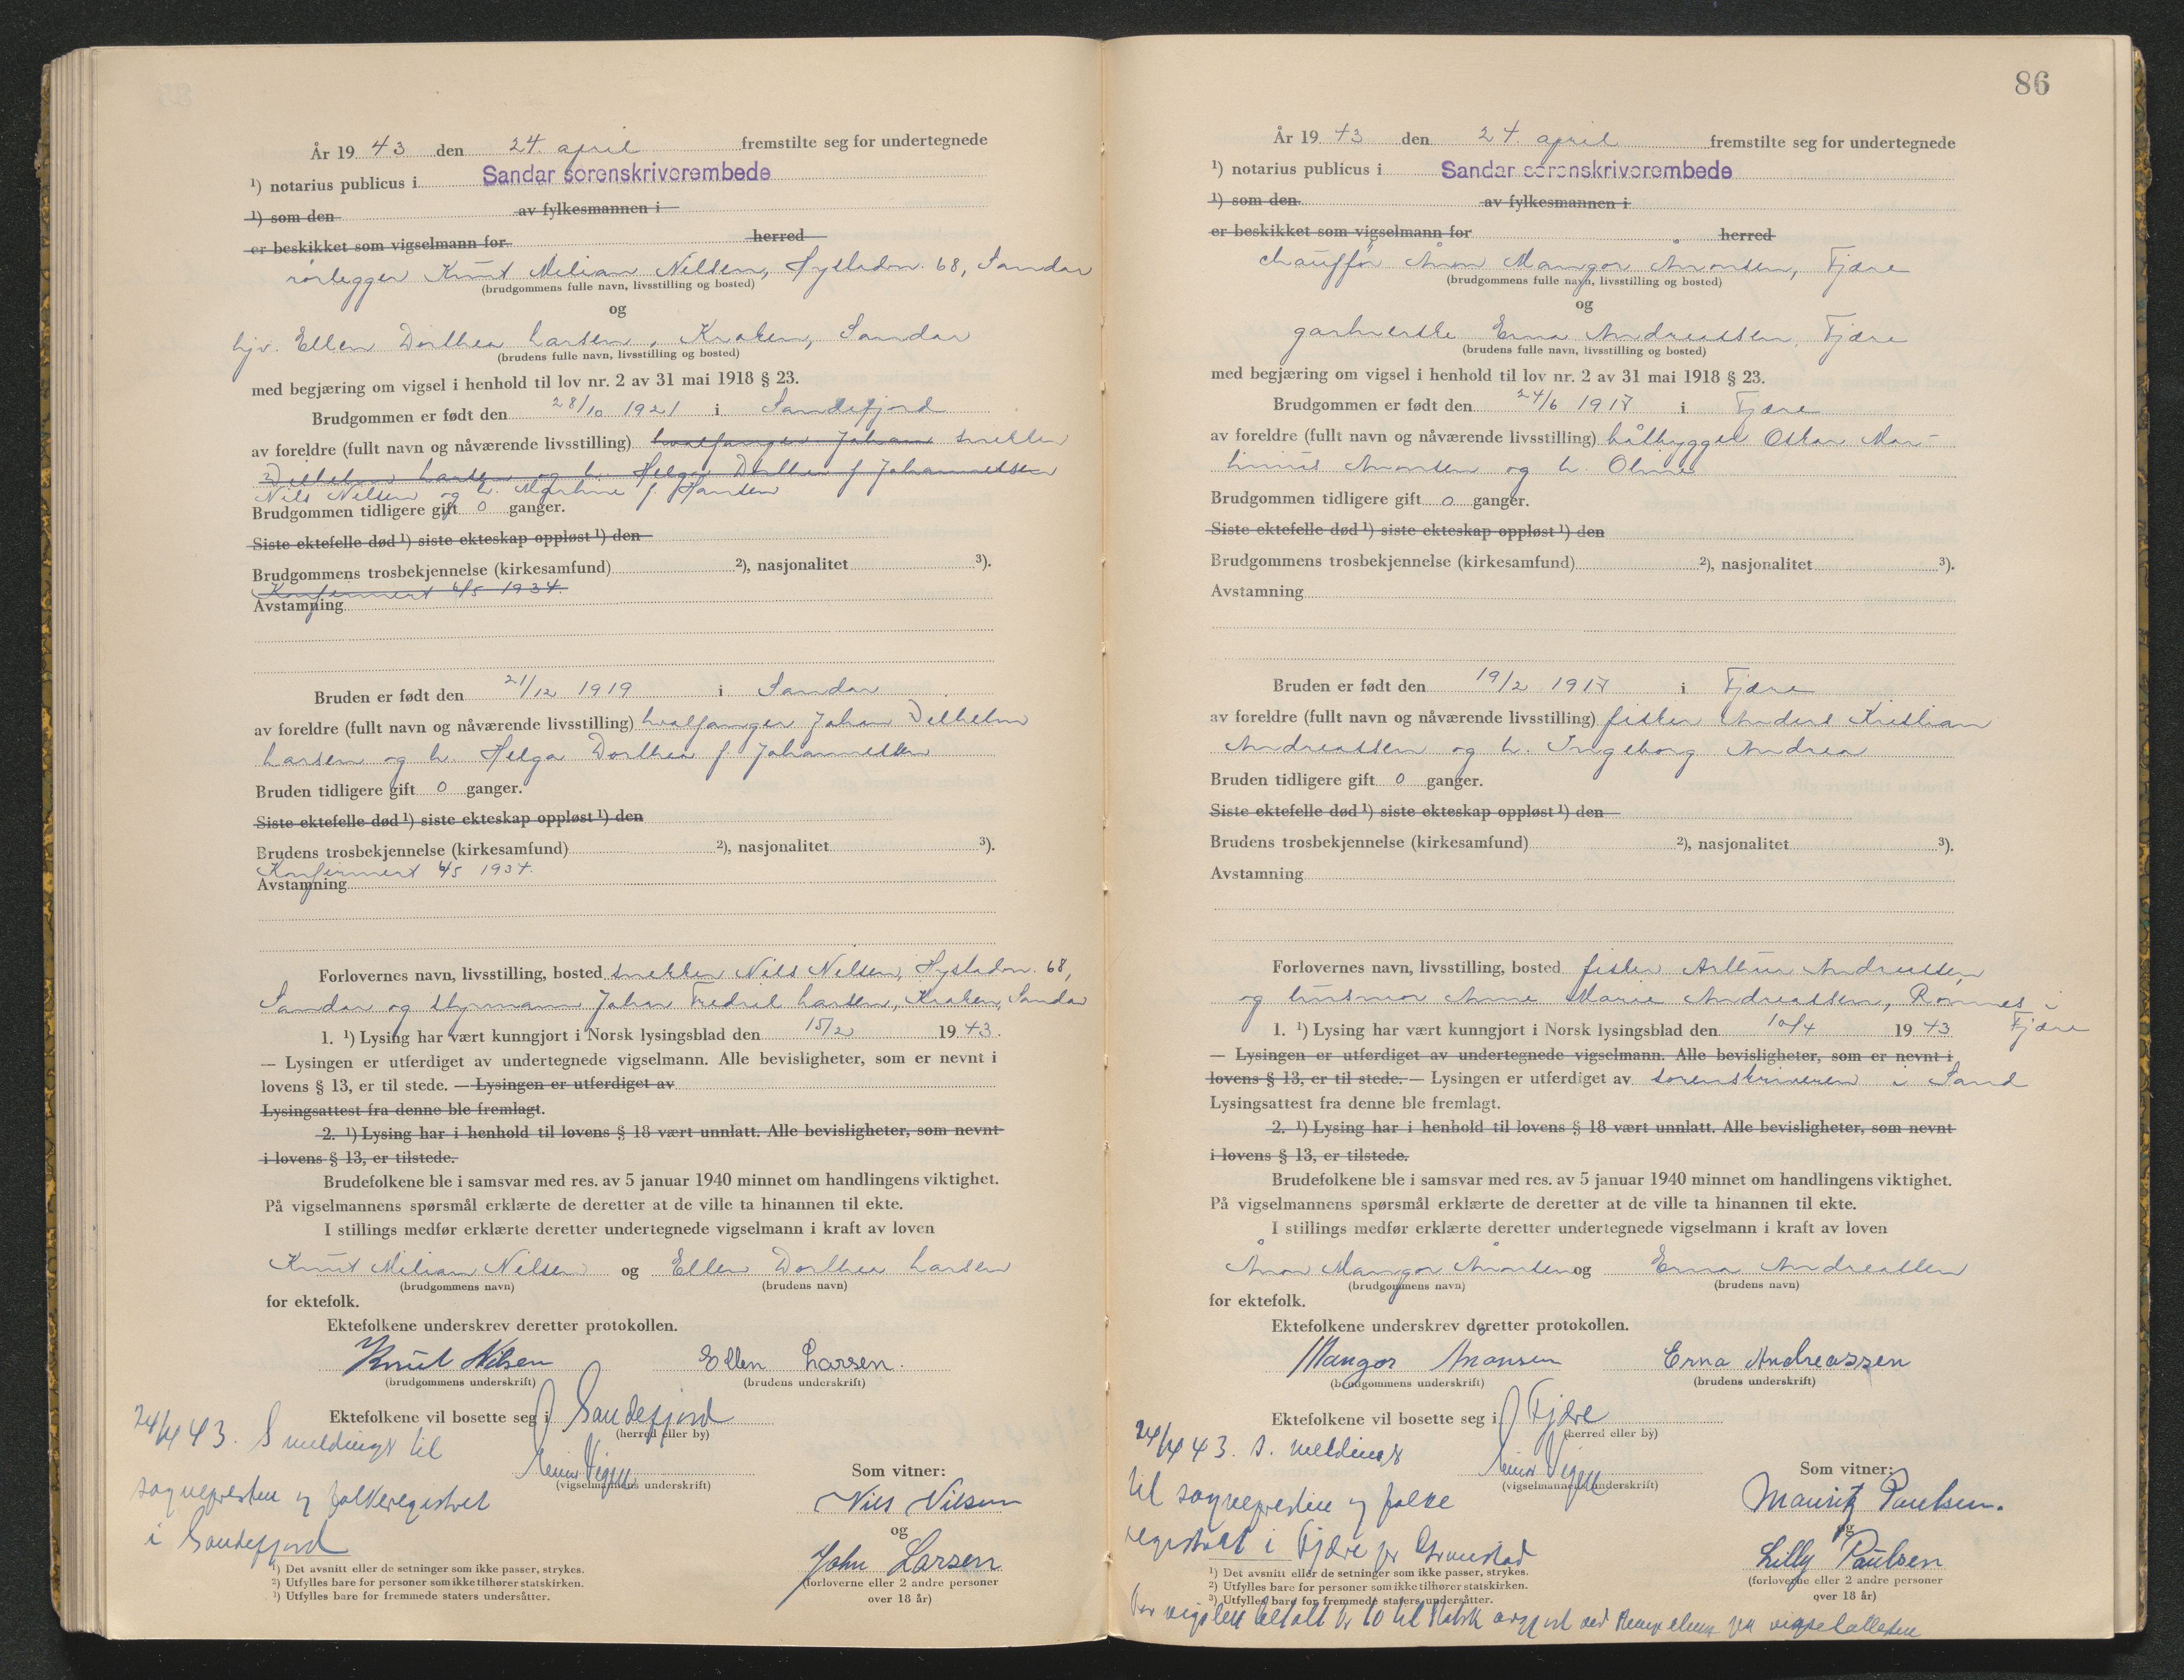 År 19 43 den 24. april fremstilte seg for undertegnede
¹) notarius publicus i Sandar sorenskriverembede
¹) som den av fylkesmannen i
er beskikket som vigselmann for herred
rørlegger Knut Milian Nilsen, Hystadvn. 68, Sandar
(brudgommens fulle navn, livsstilling og bosted)
og
hjv. Ellen Dorthea Larsen, Kraken, Sandar
(brudens fulle navn, livsstilling og bosted)
med begjæring om vigsel i henhold til lov nr. 2 av 31 mai 1918 § 23.
Brudgommen er født den 28/10 1921 i Sandefjord
av foreldre (fullt navn og nåværende livsstilling) hvalfanger Johan snekker
Vilhelm Larsen og h. Helga Dorthea f. Johannessen
Nils Nilsen og h. Marthine f. Hansen
Brudgommen tidligere gift 0 ganger.
Siste ektefelle død ¹) siste ekteskap oppløst ¹) den
Brudgommens trosbekjennelse (kirkesamfund) ²), nasjonalitet ³).
Konfirmert 6/5 1934.
Avstamning
Bruden er født den 21/12 1919 i Sandar
av foreldre (fullt navn og nåværende livsstilling) hvalfanger Johan Vilhelm
Larsen og h. Helga Dorthea f. Johannessen
Bruden tidligere gift 0 ganger.
Siste ektefelle død ¹) siste ekteskap oppløst ¹) den
Brudens trosbekjennelse (kirkesamfund) ²), nasjonalitet ³).
Konfirmert 6/5 1934.
Avstamning
Forlovernes navn, livsstilling, bosted snekker Nils Nilsen, Hystadvn. 68,
Sandar og styrmann Johan Fredrik Larsen, Kraken, Sandar
1. ¹) Lysing har vært kunngjort i Norsk lysingsblad den 15/2 1943.
— Lysingen er utferdiget av undertegnede vigselmann. Alle bevisligheter, som er nevnt i
lovens § 13, er til stede. — Lysingen er utferdiget av
Lysingsattest fra denne ble fremlagt.
2. ¹) Lysing har i henhold til lovens § 18 vært unnlatt. Alle bevisligheter, som nevnt
i lovens § 13, er tilstede.
Brudefolkene ble i samsvar med res. av 5 januar 1940 minnet om handlingens viktighet.
På vigselmannens spørsmål erklærte de deretter at de ville ta hinannen til ekte.
I stillings medfør erklærte deretter undertegnede vigselmann i kraft av loven
Knut Milian Nilsen og Ellen Dorthea Larsen
(brudgommens navn) (brudens navn)
for ektefolk.
Ektefolkene underskrev deretter protokollen.
Knut Nilsen Ellen Larsen.
(brudgommens underskrift) (brudens underskrift)
Ektefolkene vil bosette seg i Sandefjord
(herred eller by)
24/4 43. S meldings til
(vigselmannens underskrift)
Som vitner:
sognepresten og folkeregistret
Nils Nilsen
i Sandefjord
og
John Larsen
(forloverne eller 2 andre personer
over 18 år)
¹) Det avsnitt eller de setninger som ikke passer, strykes.
²) Utfylles bare for personer som ikke tilhører statskirken.
³) Utfylles bare for fremmede staters undersåtter.
86
År 19 43 den 24. april fremstilte seg for undertegnede
¹) notarius publicus i Sandar sorenskriverembede
¹) som den av fylkesmannen i
er beskikket som vigselmann for herred
chauffør Ånon Mangor Ånonsen, Fjære
(brudgommens fulle navn, livsstilling og bosted)
og
Erna Andreassen, Fjære
(brudens fulle navn, livsstilling og bosted)
med begjæring om vigsel i henhold til lov nr. 2 av 31 mai 1918 § 23.
Brudgommen er født den 24/6 1917 i Fjære
av foreldre (fullt navn og nåværende livsstilling) båtbygger Oskar Mar-
thinius Ånonsen og h. Oline
Brudgommen tidligere gift 0 ganger.
Siste ektefelle død ¹) siste ekteskap oppløst ¹) den
Brudgommens trosbekjennelse (kirkesamfund) ²), nasjonalitet ³).
Avstamning
Bruden er født den 19/2 1917 i Fjære
av foreldre (fullt navn og nåværende livsstilling) fisker Anders Kristian
Andreassen og h. Ingeborg Andrea
Bruden tidligere gift 0 ganger.
Siste ektefelle død ¹) siste ekteskap oppløst ¹) den
Brudens trosbekjennelse (kirkesamfund) ²), nasjonalitet ³).
Avstamning
Forlovernes navn, livsstilling, bosted fisker Arthur Andreassen
og husmor Anne Marie Andreassen, Rønnes i
Fjære
1. ¹) Lysing har vært kunngjort i Norsk lysingsblad den 10/4 1943
— Lysingen er utferdiget av undertegnede vigselmann. Alle bevisligheter, som er nevnt i
lovens § 13, er til stede. — Lysingen er utferdiget av sorenskriveren i Sand
Lysingsattest fra denne ble fremlagt.
2. ¹) Lysing har i henhold til lovens § 18 vært unnlatt. Alle bevisligheter, som nevnt
i lovens § 13, er tilstede.
Brudefolkene ble i samsvar med res. av 5 januar 1940 minnet om handlingens viktighet.
På vigselmannens spørsmål erklærte de deretter at de ville ta hinannen til ekte.
I stillings medfør erklærte deretter undertegnede vigselmann i kraft av loven
Ånon Mangor Ånonsen og Erna Andreassen
(brudgommens navn) (brudens navn)
for ektefolk.
Ektefolkene underskrev deretter protokollen.
Mangor Ånonsen Erna Andreassen
(brudgommens underskrift) (brudens underskrift)
Ektefolkene vil bosette seg i Fjære
(herred eller by)
24/4 43. S. meldings
(vigselmannens underskrift)
Som vitner:
til sognepresten og folke
Mauritz Paulsen.
registret i Fjære pr Grimstad
og
Lilly Paulsen
(forloverne eller 2 andre personer
over 18 år)
¹) Det avsnitt eller de setninger som ikke passer, strykes.
²) Utfylles bare for personer som ikke tilhører statskirken.
³) Utfylles bare for fremmede staters undersåtter.
For vigslen betalt kr 10 til